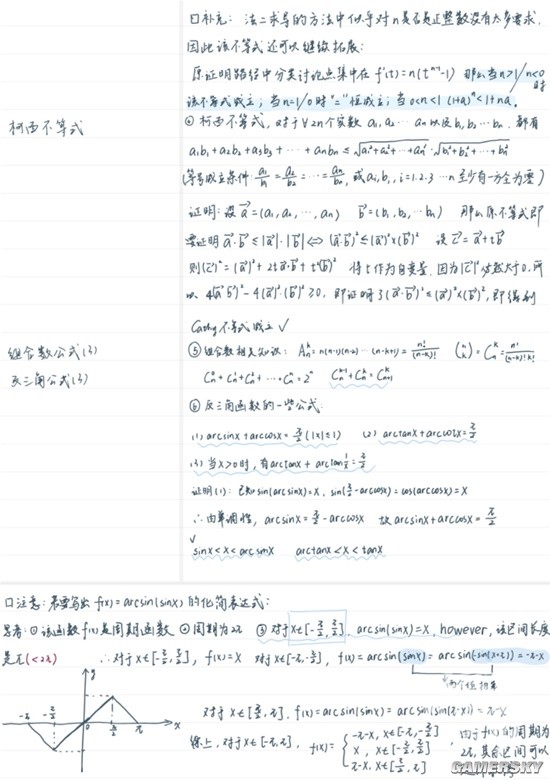 口补充: 法二求导的方法中似乎对n是否是正整数没有太多要求,
因此该不等式还可以继续拓展:
原证明路径中分类讨论点集中在 f'(t)=n(tⁿ⁻¹-1) 那么当n>1/n<0时
该不等式成立; 当n=1/0时"="恒成立; 当0<n<1 (1+a)ⁿ<1+na.
柯西不等式
④ 柯西不等式, 对于∀2n个实数 a₁, a₂ … aₙ 以及 b₁, b₂ … bₙ. 都有
a₁b₁+a₂b₂+a₃b₃+ … +aₙbₙ ≤ √(a₁²+a₂²+…+aₙ²)·√(b₁²+b₂²+…+bₙ²)
(等号成立条件 a₁/b₁=a₂/b₂=…=aₙ/bₙ, 或aᵢ,bᵢ, i=1.2.3 …n 至少有一方全为零)
证明: 设 a⃗=(a₁,a₂, …,aₙ) b⃗=(b₁,b₂,…bₙ) 那么原不等式即
要证明 a⃗·b⃗≤|a⃗|·|b⃗| ⇔ (a⃗·b⃗)²≤(a⃗)²×(b⃗)² 设 c⃗=a⃗+tb⃗
则(c⃗)²=(a⃗)²+2ta⃗·b⃗+t²(b⃗)² 将t作为自变量. 因为|c⃗|²
4(a⃗·b⃗)²-4(a⃗)²·(b⃗)² 即证明了(a⃗·b⃗)²≤(a⃗)²×(b⃗)², 即得到
Cathy不等式成立 √
组合数公式(3)
⑤ 组合数相关知识: Aₙᵏ=n(n-1)(n-2)…(n-k+1)=n!/(n-k)! (n k)=Cₙᵏ=n!/(n-k)!k!
反三角公式(3)
Cₙ⁰+Cₙ¹+Cₙ²+…+Cₙⁿ=2ⁿ Cₙᵏ⁻¹+Cₙᵏ=Cₙ₊₁ᵏ
⑥ 反三角函数的一些公式:
(1) arcsinx+arccosx=π/2(|x|≤1) (2) arctanx+arccotx=π/2
(3) 当x>0时, 有arctanx+arctan1/x=π/2
证明(1): 已知sin(arcsinx)=x. sin(π/2-arccosx)=cos(arccosx)=x
∴由单调性, arcsinx=π/2-arccosx 故 arcsinx+arccosx=π/2
√
sinx<x<arcsinx arctanx<x<tanx
口注意: 若要写出 f(x)=arcsin(sinx) 的化简表达式:
思考: ①该函数f(x)是周期函数 ②周期为2π ③对于x∈[-π/2,π/2], arcsin(sinx)=x, however, 该区间长度
是π(<2π) ∴对于x∈[-π/2,π/2], f(x)=x 对于x∈[-π,-π/2], f(x)=arcsin(sinx)=arcsin(-sin(x+π))=-π-x
y
-π -π/2 0 π/2 π x
对于x∈[π/2,π], f(x)=arcsin(sinx)=arcsin(sin(π-x))=π-x
综上, 对于x∈[-π,π], f(x)={ -π-x, x∈[-π,-π/2]
x, x∈[-π/2,π/2]
π-x, x∈[π/2,π]
由于f(x)的周期为
2π, 其余区间可以
GAMERSKY